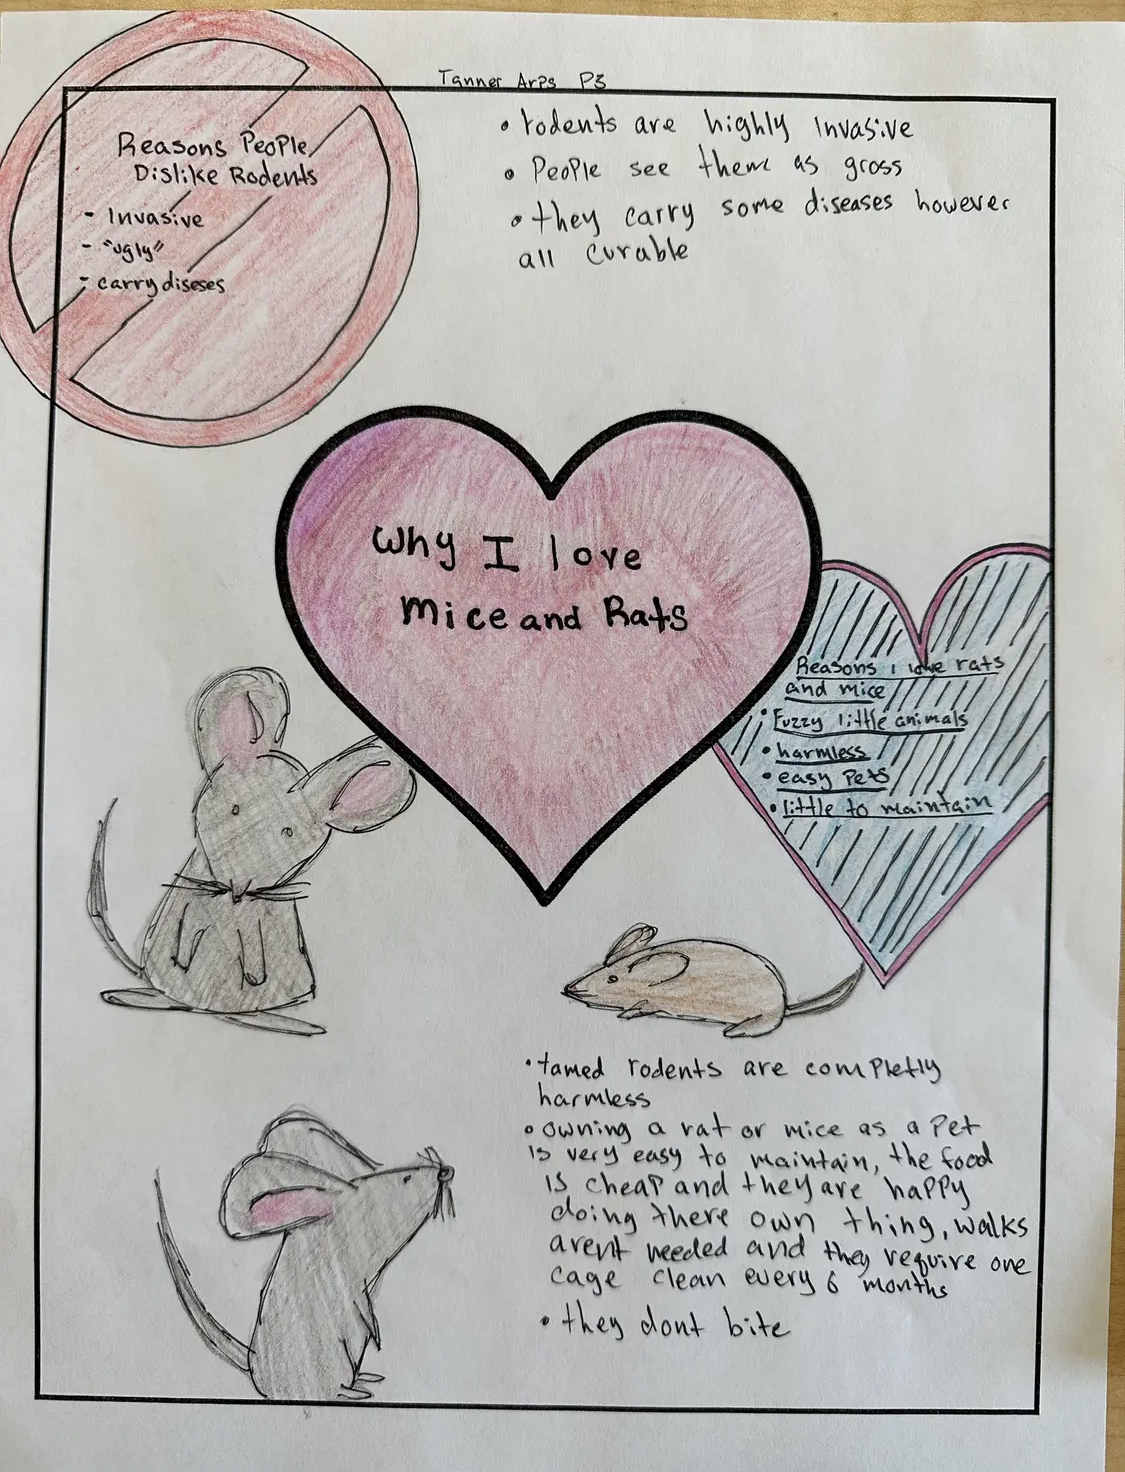 Tanner Arps P3
Reasons People
Dislike Rodents
- Invasive
- "ugly"
- carry diseses
• rodents are highly invasive
• People see them as gross
• they carry some diseases however
all curable
Why I love
Mice and Rats
Reasons I love rats
and mice
• Fuzzy little animals
• harmless
• easy Pets
• little to maintain
• tamed rodents are completly
harmless
• owning a rat or mice as a Pet
is very easy to maintain, the food
is cheap and they are happy
doing there own thing, walks
arent needed and they require one
cage clean every 6 months
• they dont bite